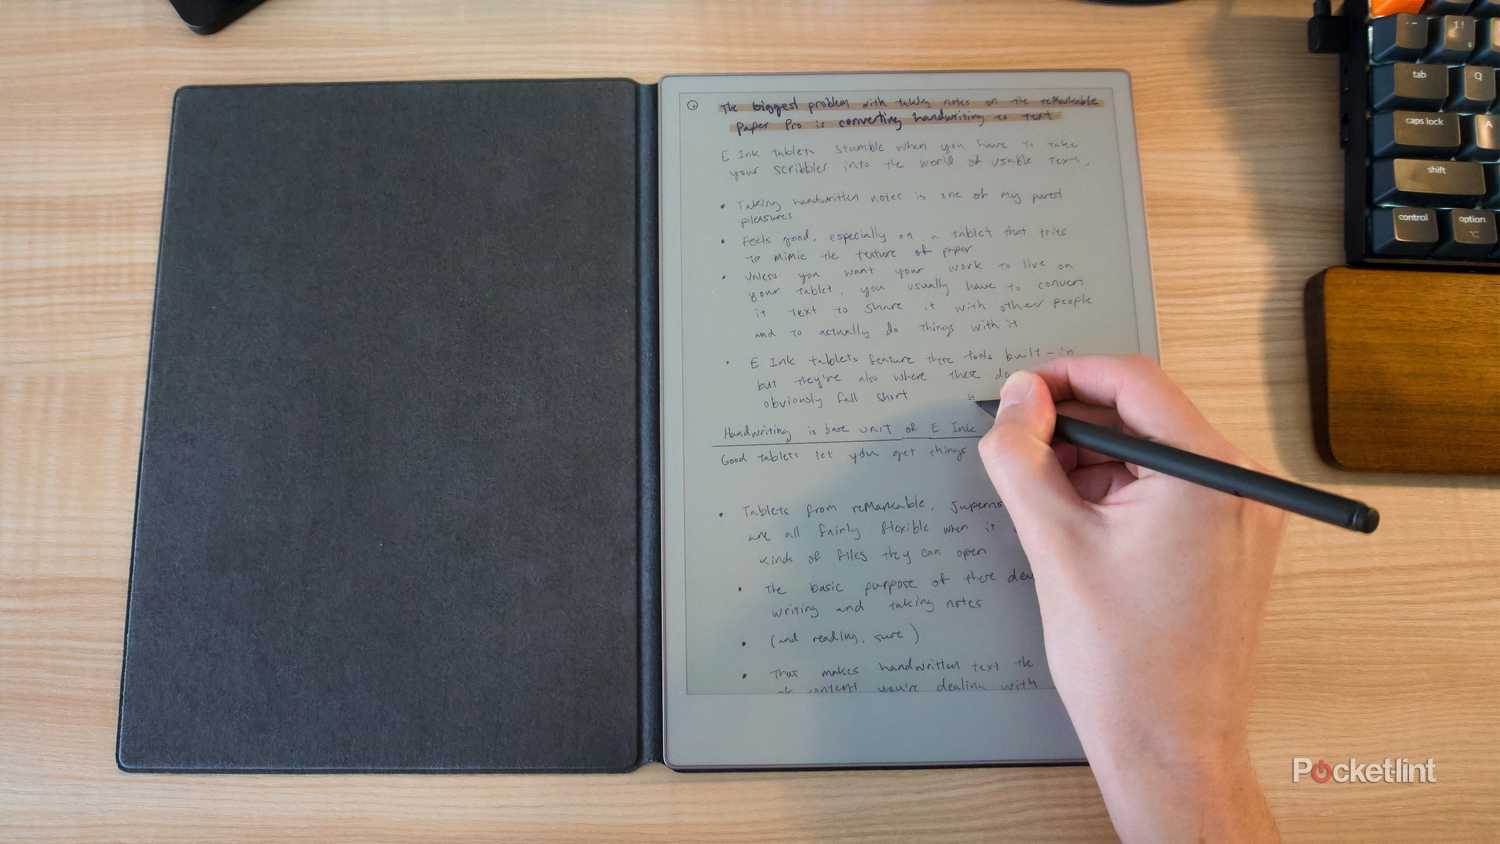 The biggest problem with taking notes on the reMarkable
Paper Pro is converting handwriting to text
E Ink tablets stumble when you have to take
your scribbler into the world of usable text.
• Taking handwritten notes is one of my purest
pleasures
• Feels good, especially on a tablet that tries
to mimic the texture of paper
• Unless you want your work to live on
your tablet, you usually have to convert
it text to share it with other people
and to actually do things with it
• E Ink tablets feature these tools built-in
but they're also where these
obviously fall short
Handwriting is base unit of E Ink
Good tablets let you get things
• Tablets from reMarkable,
are all fairly flexible when it
kinds of files they can open
• The basic purpose of these
writing and taking notes
• (and reading, sure)
• That makes handwritten text the
of content you're dealing with
tab
Q
caps lock
A
shift
control
option
Pocketlint